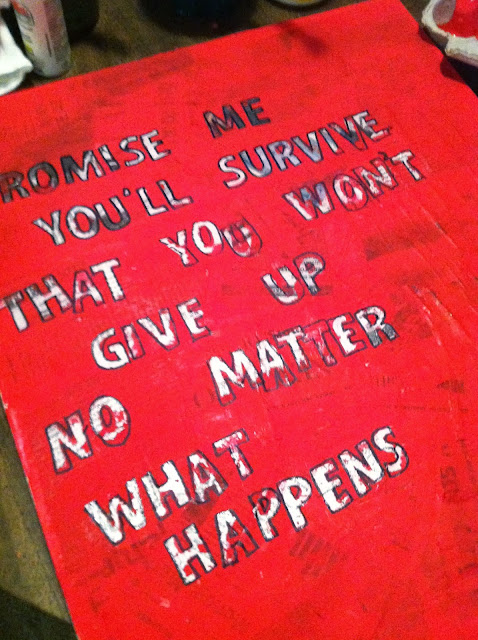 ROMISE ME
YOU'LL SURVIVE
THAT YOU WON'T
GIVE UP
NO MATTER
WHAT
HAPPENS